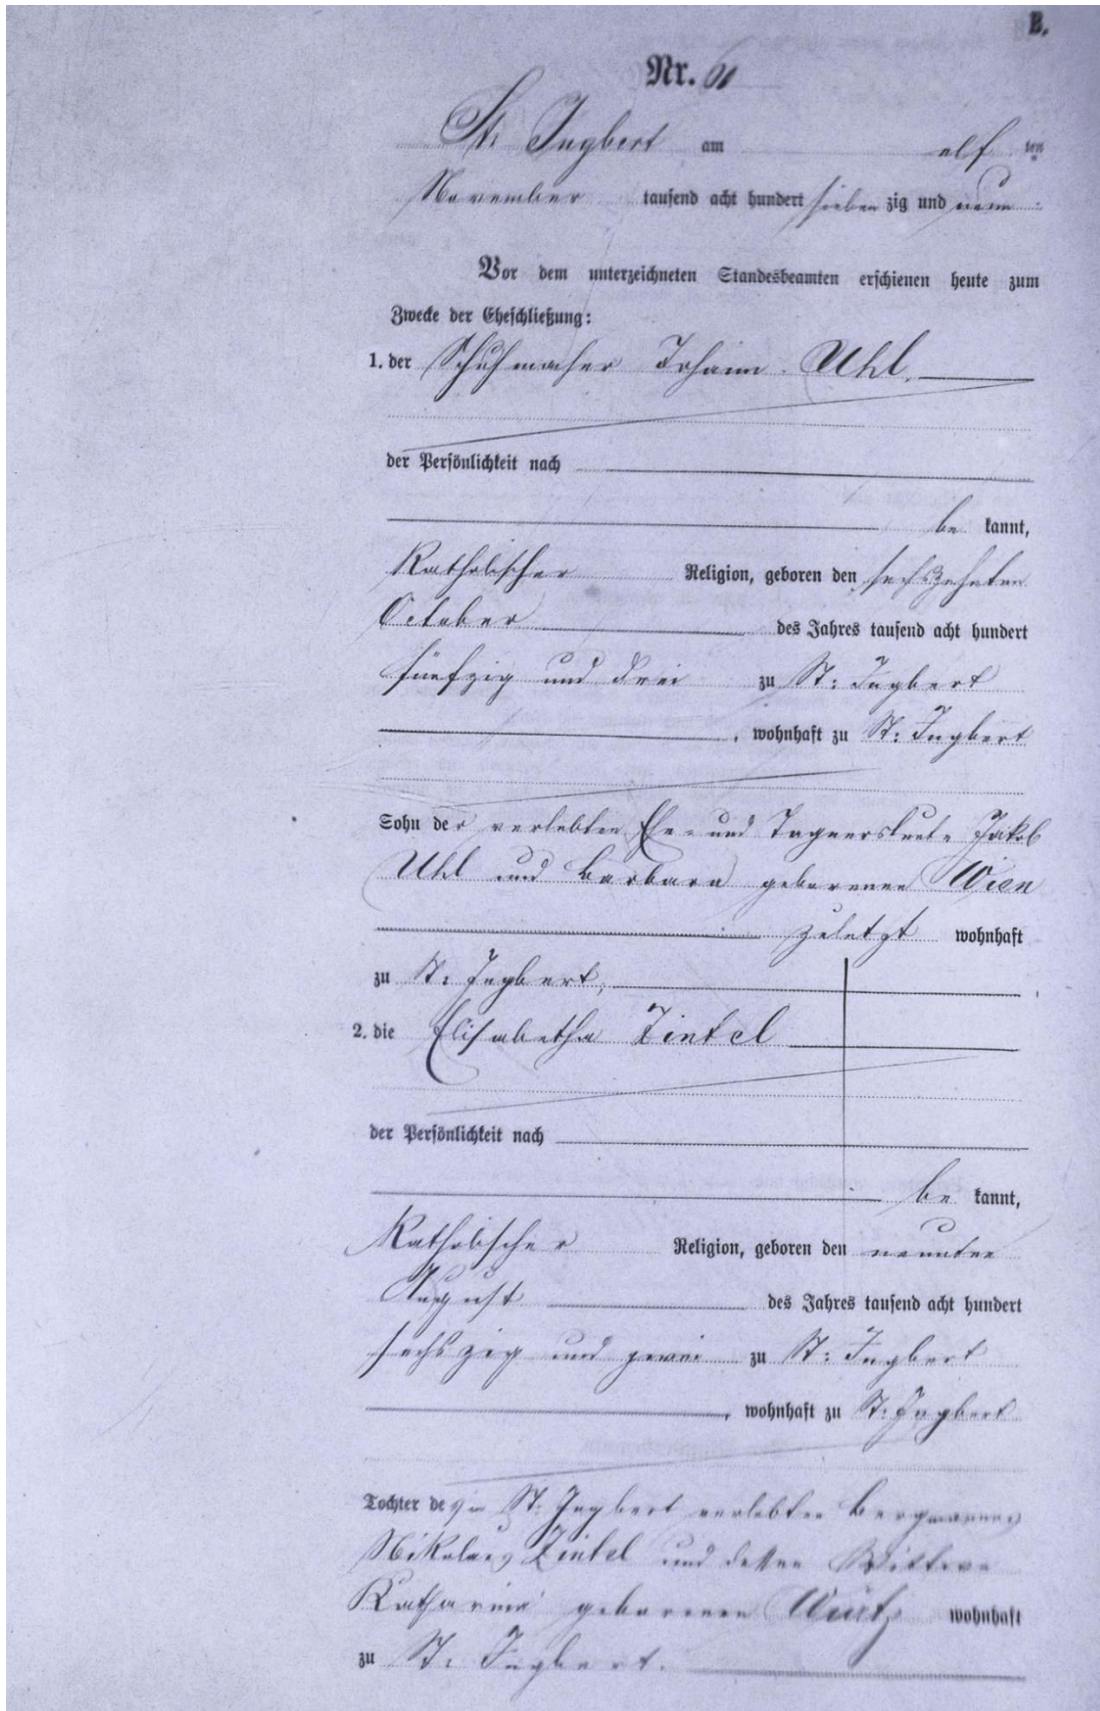 B.
Nr. 60
St. Ingbert am elf ten
November tausend acht hundert sieben zig und neun
Vor dem unterzeichneten Standesbeamten erschienen heute zum
Zwecke der Eheschließung:
1. der Schuhmacher Johann Uhl,
der Persönlichkeit nach
be kannt,
Katholischer Religion, geboren den sechszehnten
October des Jahres tausend acht hundert
fünfzig und drei zu St: Ingbert
, wohnhaft zu St: Ingbert
Sohn der verlebten Ehe- und Tagnersleute Jakob
Uhl und Barbara geborenen Wien
zuletzt wohnhaft
zu St: Ingbert;
2. die Elisabetha Zintel
der Persönlichkeit nach
be kannt,
Katholischer Religion, geboren den neunten
August des Jahres tausend acht hundert
sechszig und zwei zu St: Ingbert
, wohnhaft zu St: Ingbert
Tochter des in St: Ingbert verlebten Bergmannes
Nikolaus Zintel und dessen Wittwe
Katharina geborenen wohnhaft
zu St: Ingbert.